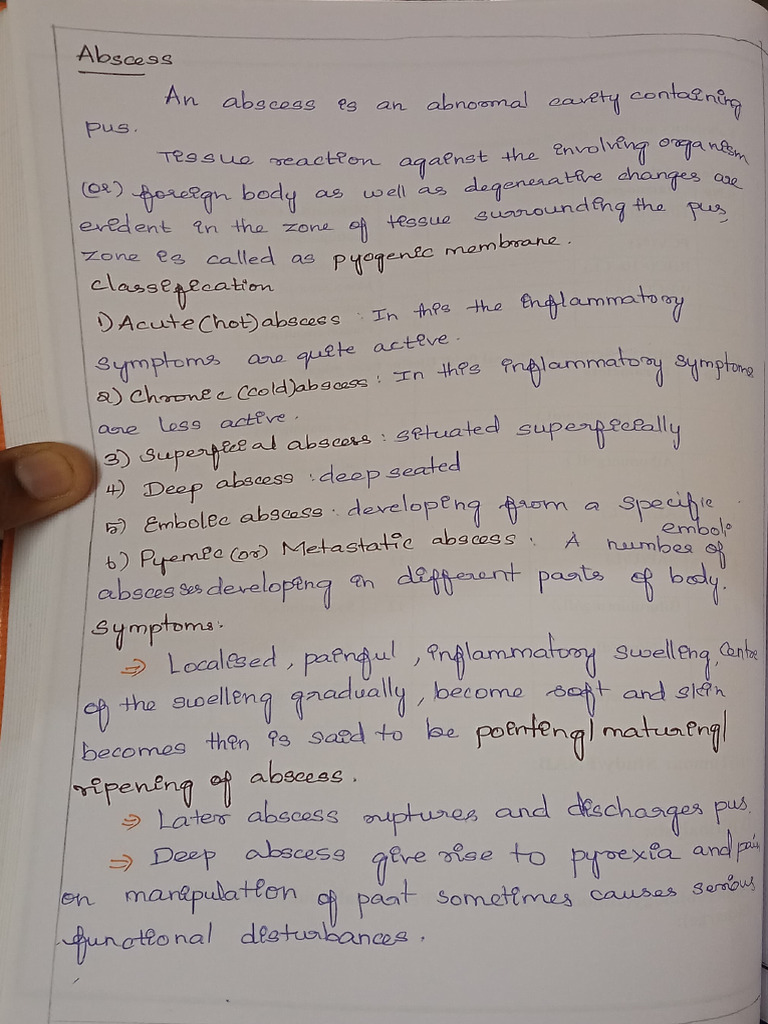 Abscess
An abscess is an abnormal cavity containing
pus.
Tissue reaction against the involving organism
(or) foreign body as well as degenerative changes are
evident in the zone of tissue surrounding the pus,
zone is called as pyogenic membrane.
Classification
1) Acute (hot) abscess : In this the inflammatory
symptoms are quite active.
2) Chronic (cold) abscess : In this inflammatory symptoms
are less active.
3) Superficial abscess : situated superficially
4) Deep abscess : deep seated
5) Embolic abscess : developing from a specific
emboli
6) Pyemic (or) Metastatic abscess : A number of
abscesses developing in different parts of body.
Symptoms:
⇒ Localised, painful, inflammatory swelling, Centre
of the swelling gradually, become soft and skin
becomes thin is said to be pointing/maturing/
ripening of abscess.
⇒ Later abscess ruptures and discharges pus.
⇒ Deep abscess give rise to pyrexia and pain
on manipulation of part sometimes causes serious
functional disturbances.